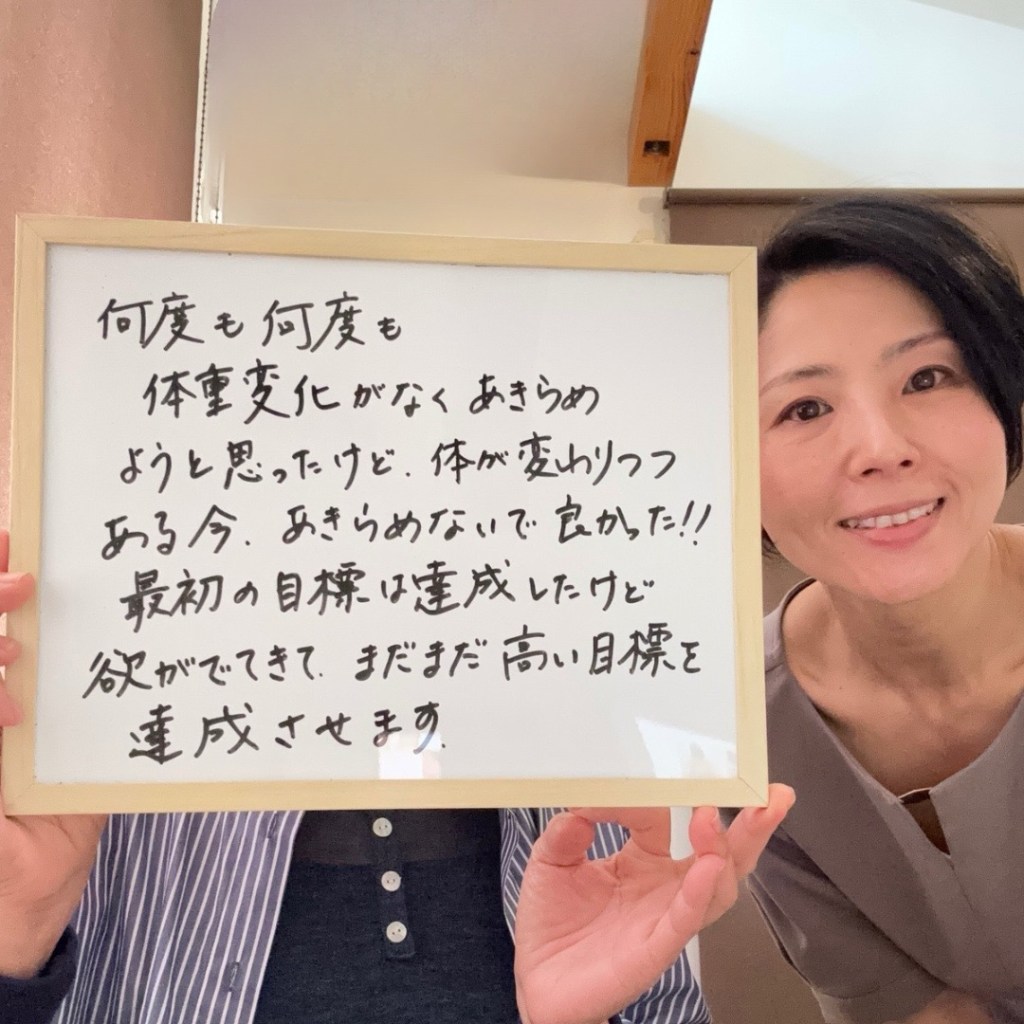 何度も何度も
体重変化がなくあきらめ
ようと思ったけど、体が変わりつつ
ある今、あきらめないで良かった!!
最初の目標は達成したけど
欲がでてきて、まだまだ高い目標を
達成させます。